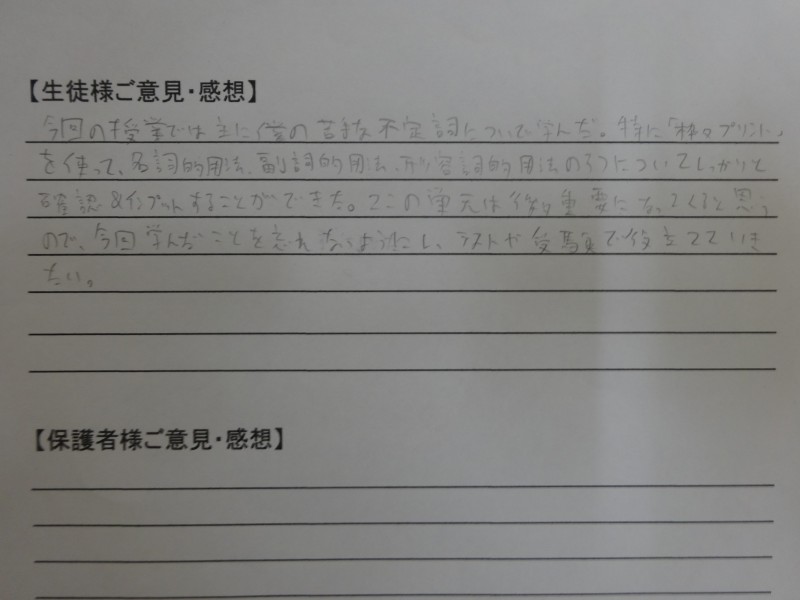 【生徒様ご意見・感想】
今回の授業では主に僕の苦手な不定詞について学んだ。特に「枠々プリント」
を使って、名詞的用法、副詞的用法、形容詞的用法の3つについてしっかりと
確認&インプットすることができた。この単元は後々重要になってくると思う
ので、今回学んだことを忘れないようにし、テストや受験で役立てていき
たい。
【保護者様ご意見・感想】